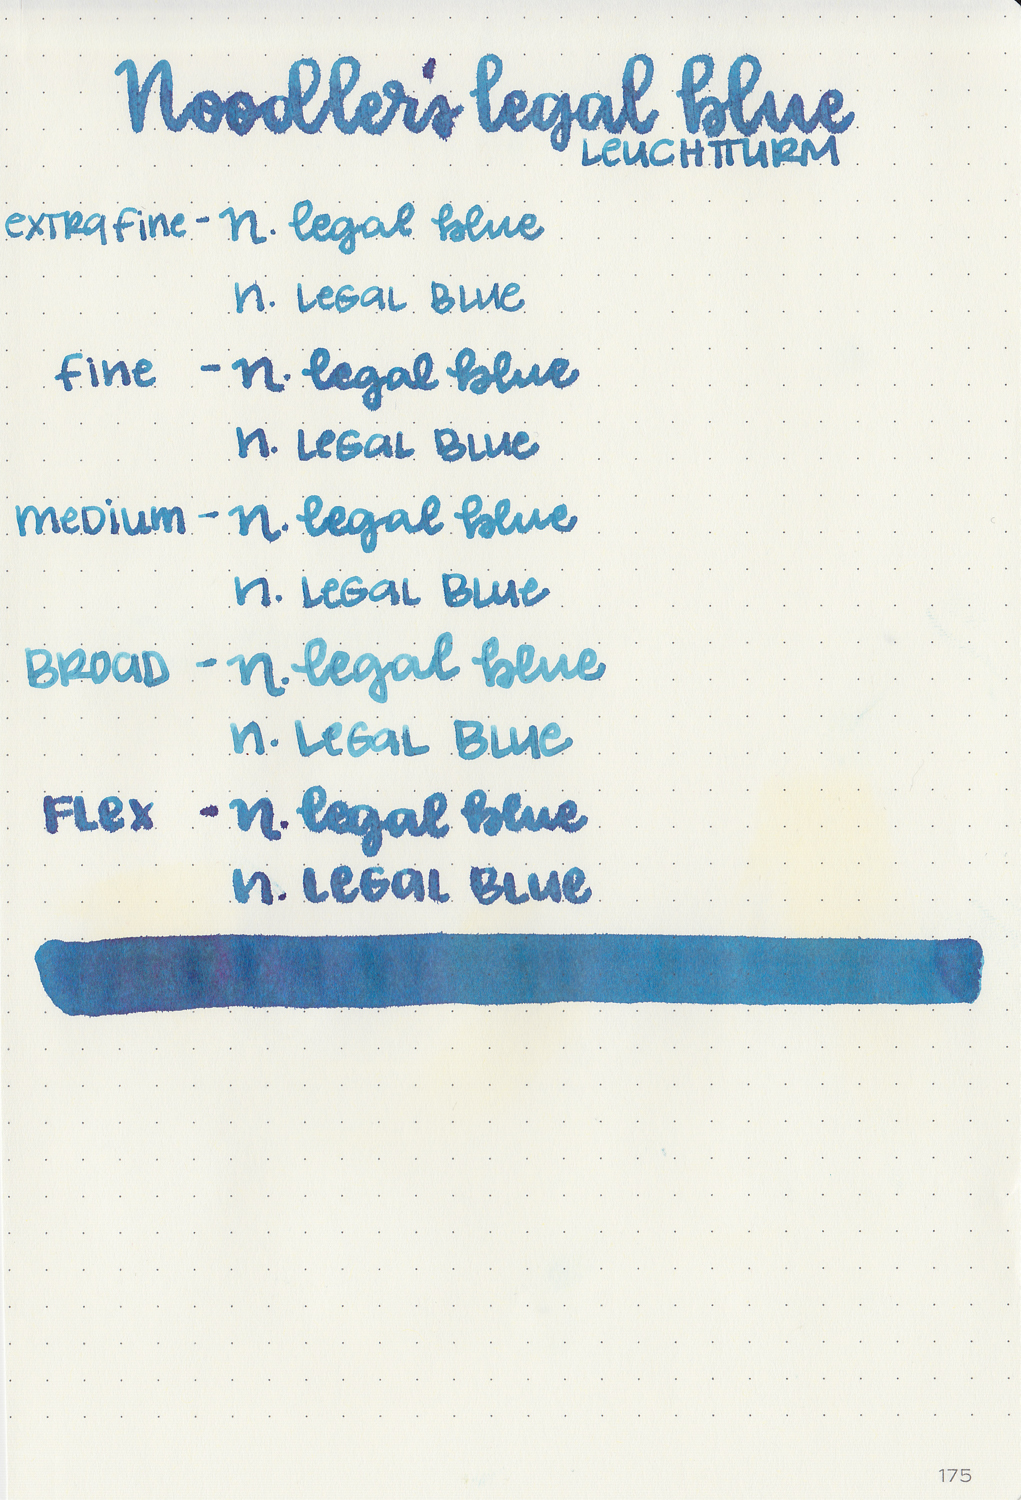 Noodler's legal blue
LEUCHTTURM
extra fine - n. legal blue
n. LeGaL BLUe
fine - n. legal blue
n. LeGaL BLUe
meDium - n. legal blue
n. LeGaL BLUe
BROAD - n. legal blue
n. LeGaL BLUe
FLex - n. legal blue
n. LeGaL BLUe
175